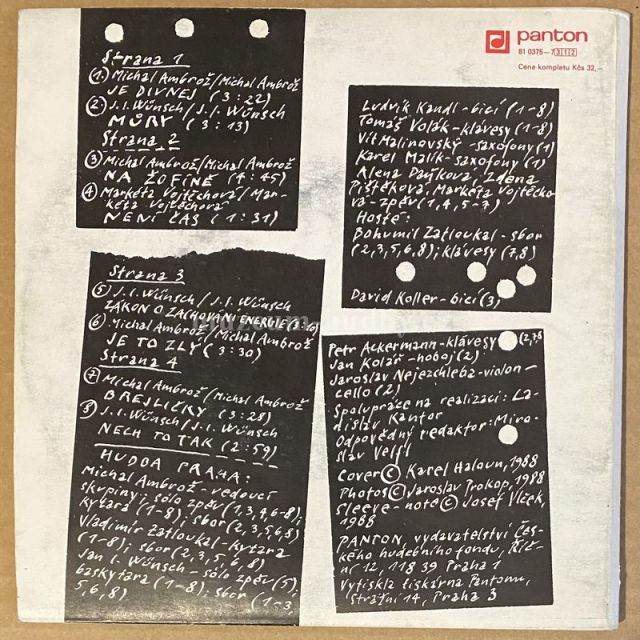 Strana 1
1. Michal Ambrož/Michal Ambrož
JE DIVNEJ (3:22)
2. J.I. Wünsch / J.I. Wünsch
MŮRY (3:13)
Strana 2
3 Michal Ambrož/Michal Ambrož
NA ŽOFÍNĚ (4:45)
4 Markéta Vojtěchová / Mar-
kéta Vojtěchová
NENÍ ČAS (1:31)
Strana 3
5 J.I. Wünsch / J.I. Wünsch
ZÁKON O ZACHOVÁNÍ ENERGIE
6 Michal Ambrož / Michal Ambrož
JE TO ZLÝ (3:30)
Strana 4
7 Michal Ambrož/Michal Ambrož
BREJLIČKY (3:28)
8 J.I. Wünsch/ J.I. Wünsch
NECH TO TAK (2:59)
HUDBA PRAHA:
Michal Ambrož - vedoucí
skupiny; sólo zpěv (1,3,4,6-8);
kytara (1-8); sbor (2,3,5,6,8)
Vladimír Zatloukal - kytara
(1-8); sbor (2,3,5,6,8)
Jan I. Wünsch - sólo zpěv (5);
baskytara (1-8); sbor (1-3,
5,6,8)
panton
81 0375-7 312
Cena kompletu Kčs 32,-
Ludvík Kandl - bicí (1-8)
Tomáš Volák - klávesy (1-8)
Vít Malinovský - saxofony (1)
Karel Malík - saxofony (1)
Alena Daňková, Zdena
Pištěková, Markéta Vojtěcho-
vá - zpěv (1,4,5-7)
Hosté:
Bohumil Zatloukal - sbor
(2,3,5,6,8); klávesy (7,8)
David Koller - bicí (3)
Petr Ackermann - klávesy (2,7,8)
Jan Kolář - hoboj (2)
Jaroslav Nejezchleba - violon-
cello (2)
Spolupráce na realizaci: La-
dislav Kantor
Odpovědný redaktor: Miro-
slav Velfl
Cover © Karel Haloun, 1988
Photos © Jaroslav Prokop, 1988
Sleeve-note © Josef Vlček,
1988
PANTON, vydavatelství Čes-
kého hudebního fondu, Říč-
ní 12, 118 39 Praha 1
Vytiskla tiskárna Pantonu,
Strašní 14, Praha 3